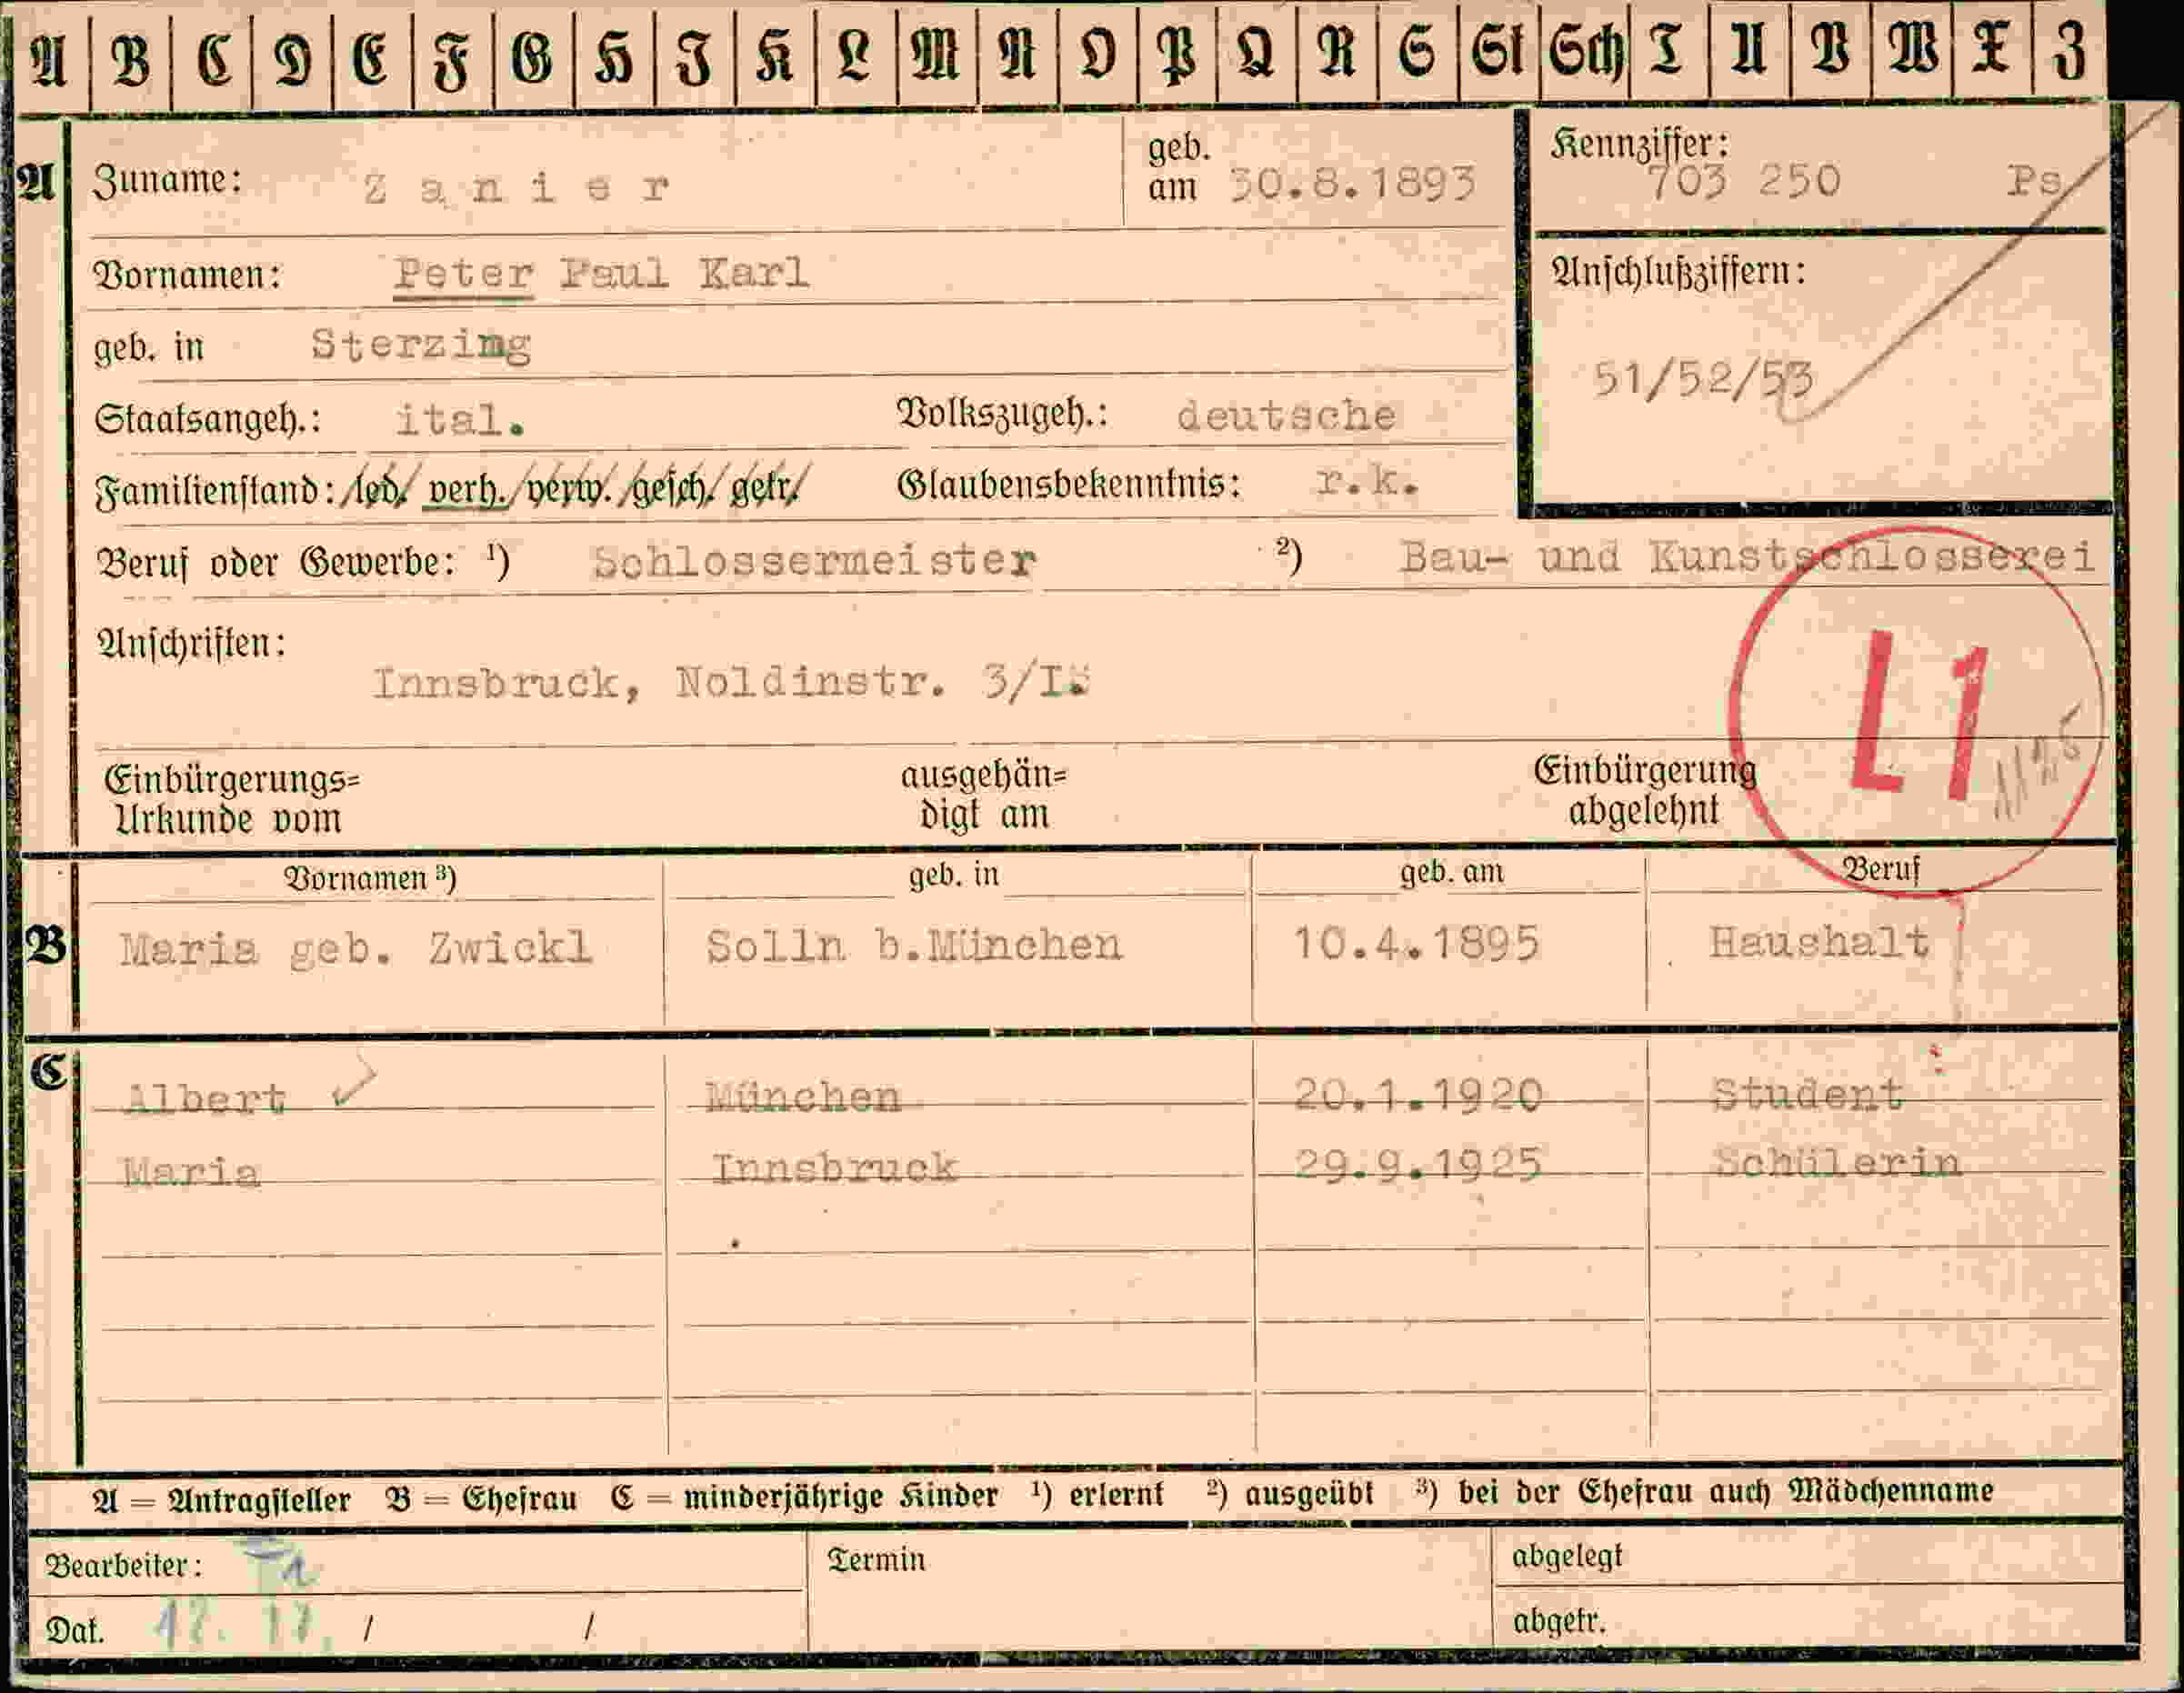 A B C D E F G H I K L M N O P Q R S St Sch T U V W X Z
A Zuname: Zanier geb. am 30.8.1893 Kennziffer: 703 250 Ps
Vornamen: Peter Paul Karl Anschlußziffern:
geb. in Sterzing 51/52/53
Staatsangeh.: ital. Volkszugeh.: deutsche
Familienstand: led/ verh./verw./gesch./getr/ Glaubensbekenntnis: r.k.
Beruf oder Gewerbe: ¹) Schlossermeister ²) Bau- und Kunstschlosserei
Anschriften:
Innsbruck, Noldinstr. 3/I
L1
Einbürgerungs= ausgehän= Einbürgerung
Urkunde vom digt am abgelehnt
Vornamen ³) geb. in geb. am Beruf
B Maria geb. Zwickl Solln b.München 10.4.1895 Haushalt
C Albert München 20.1.1920 Student
Maria Innsbruck 29.9.1925 Schülerin
A = Antragsteller B = Ehefrau C = minderjährige Kinder ¹) erlernt ²) ausgeübt ³) bei der Ehefrau auch Mädchenname
Bearbeiter: Termin abgelegt
Dat. / / abgetr.